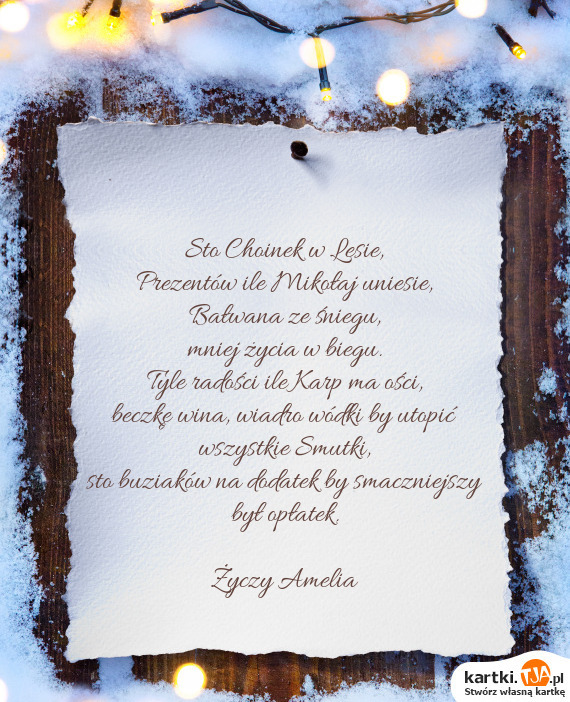 Sto Choinek w Lesie,
Prezentów ile Mikołaj uniesie,
Bałwana ze śniegu,
mniej życia w biegu.
Tyle radości ile Karp ma ości,
beczkę wina, wiadro wódki by utopić
wszystkie Smutki,
sto buziaków na dodatek by smaczniejszy
był opłatek.
Życzy Amelia
kartki.TJA.pl
Stwórz własną kartkę